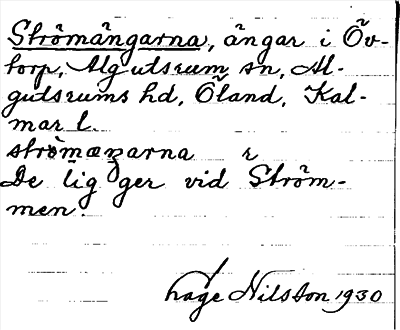 Strömängarna, ängar i Öv-
torp, Algutsrum sn, Al-
gutsrums hd, Öland, Kal-
mar l.
De ligger vid Ström-
men.
Hage Nilsson 1930